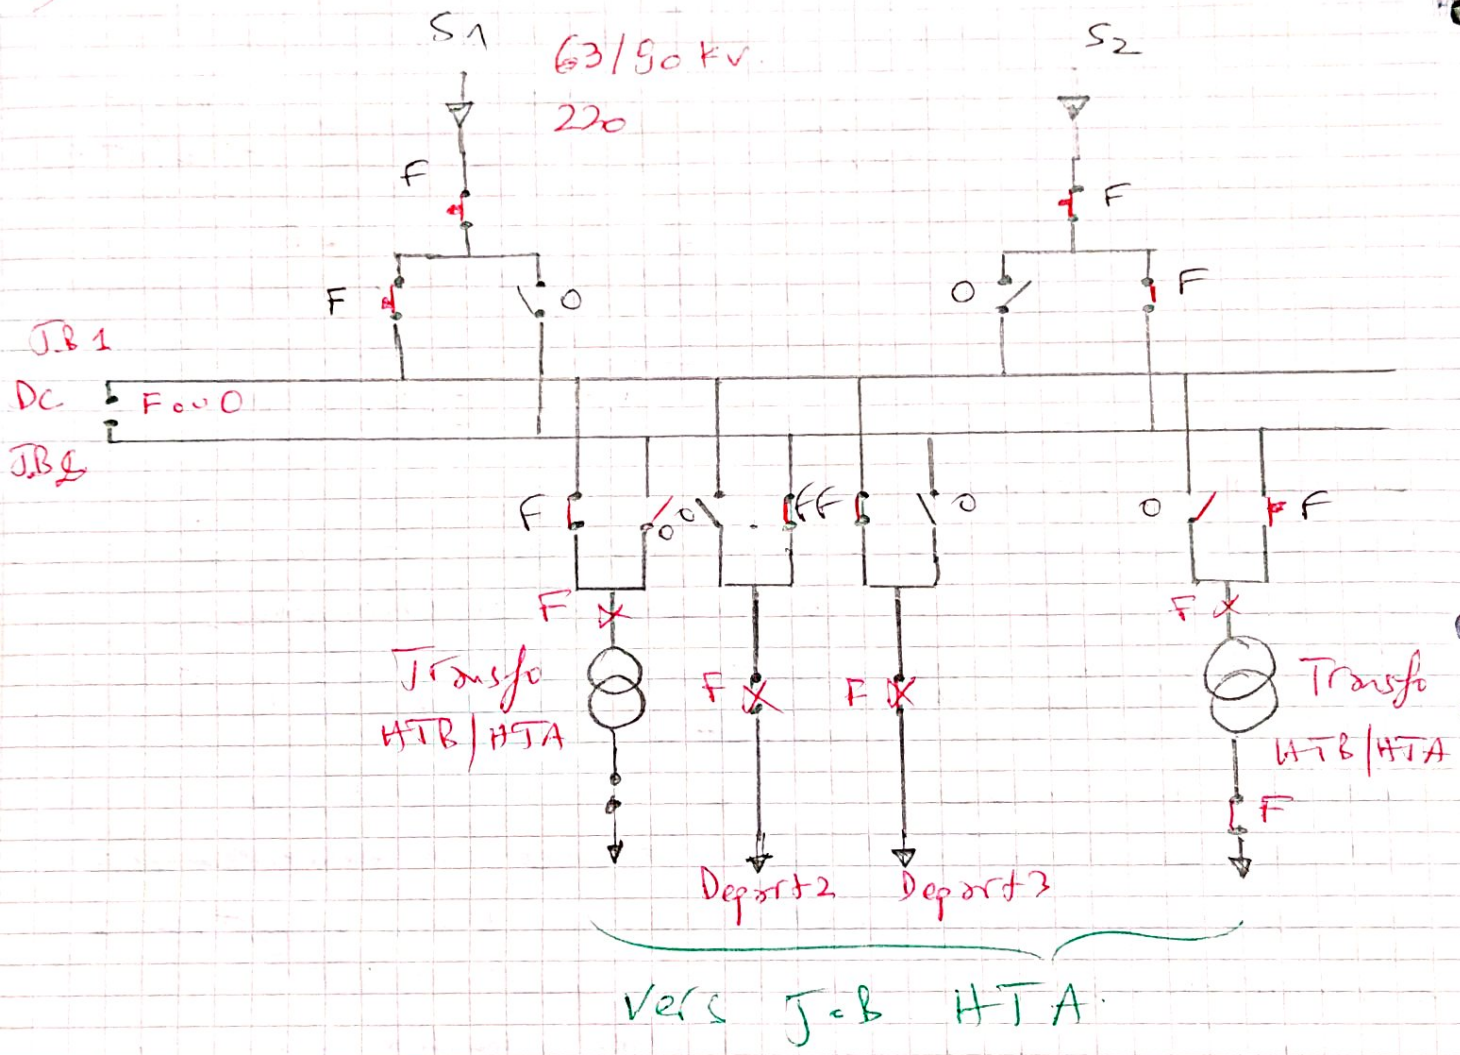 S1
63/90 kv
220
S2
F
F
F
O
O
F
J.B 1
DC
F ou O
J.B 2
F
O
O
F
F
O
O
F
F
F
Transfo
HTB/HTA
F
F
Transfo
HTB/HTA
F
Depart 2
Depart 3
Vers J.B HTA.